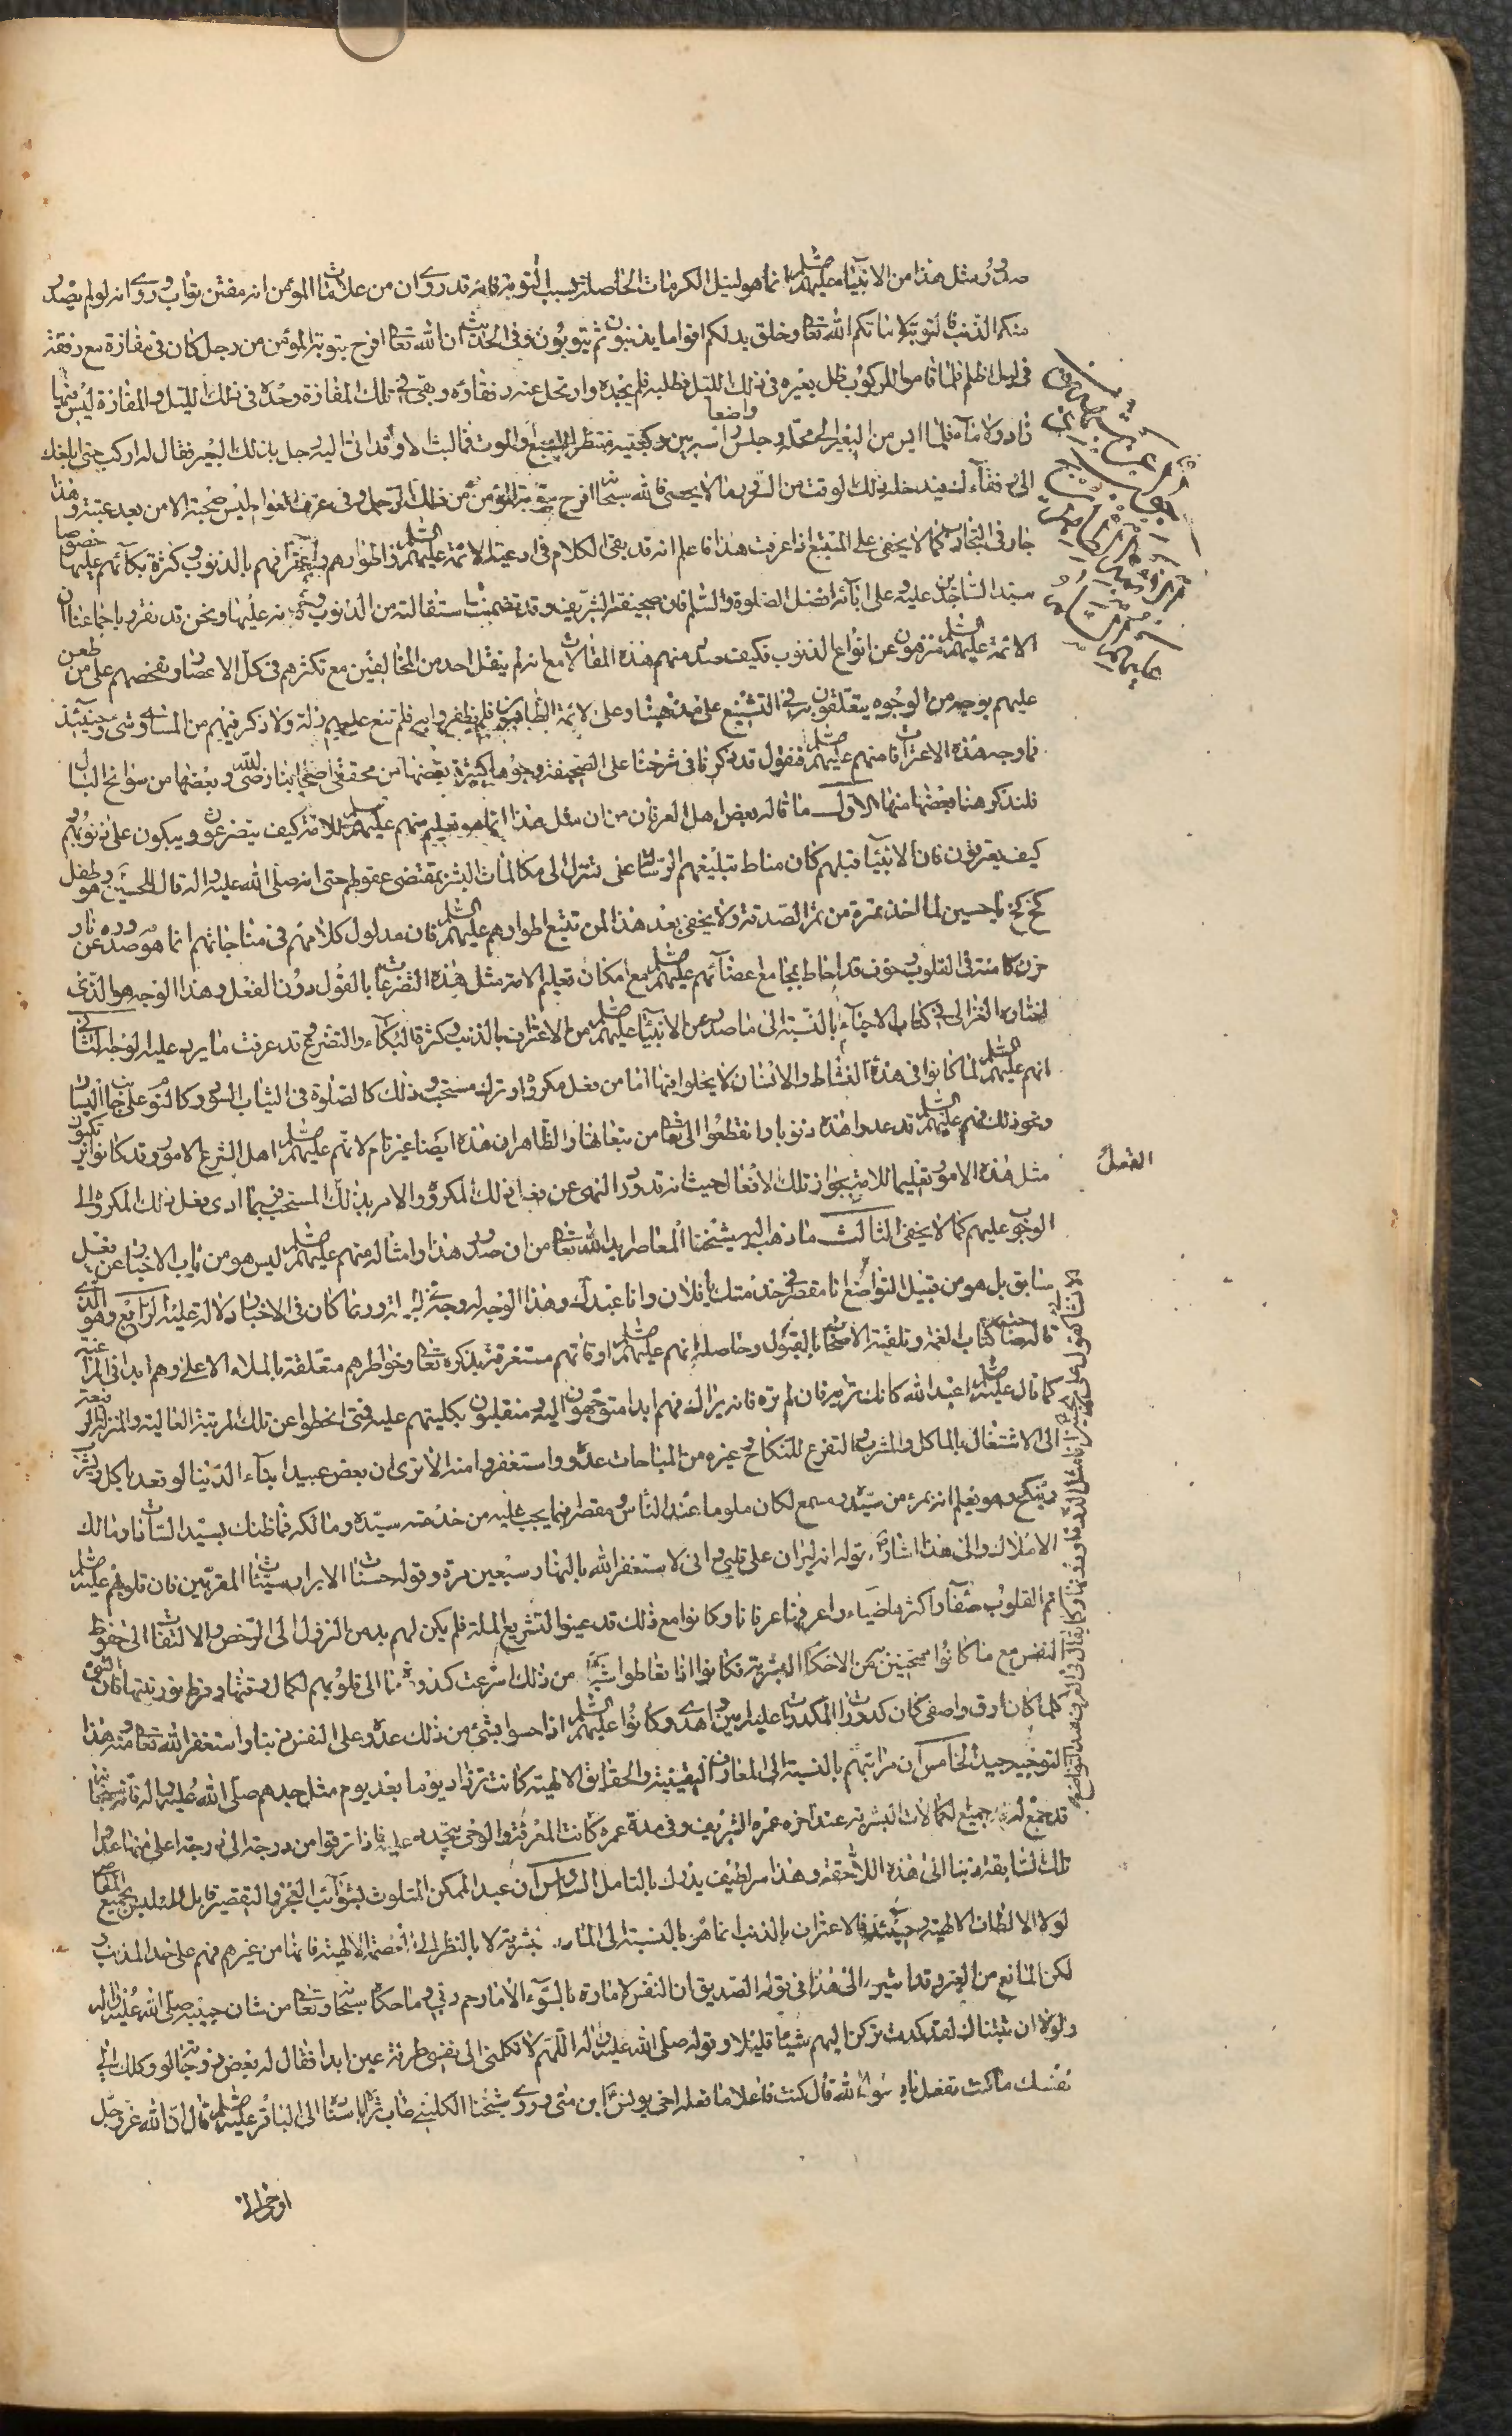 صدور مثل هذا من الانبياء عليهم السلم انما هو لنيل الكرمات الحاصلة بسبب التوبة فانه قد روى ان من علامات المؤمن انه مفتن تواب وروى انه لو لم يصدر
منكم الذنب فالتوبة لاماتكم الله تعا وخلق بدلكم اقواما يذنبون ثم يتوبون وفى الحديث ان الله تعا افرح بتوبة المؤمن من رجل كان فى مفازة مع رفقة
فى ليل اظلم فلما قاموا للركوب ضل بعيره فى ذلك الليل فطلبه فلم يجده وارتحل عنه رفقاؤه وبقى فى تلك المفازة وحده فى ذلك الليل والمفازة ليس فيها
زاد ولا ماء فلما ايس من البعير الى محله وجلس واضعا راسه بين ركبتيه منتظرا للسبع والموت فما لبث الا وقد اتى اليه رجل بذلك البعير فقال له اركب حتى ابلغك
الى رفقاء لك فيدخله ذلك الوقت من السرور ما لا يحصى فالله سبحانه افرح بتوبة المؤمن من ذلك الرجل وفى عرف العوام ليس محبة الا من بعد عتبة وهذا
جار فى التجارب كما لا يخفى على المتتبع اذا عرفت هذا فاعلم انه قد بقى الكلام فى ادعية الائمة عليهم السلم واطوارهم باعترافهم بالذنوب وكثرة بكائهم عليها خصوصا
سيد الساجدين عليه وعلى ابائه افضل الصلوة والسلم فان صحيفته الشريفة قد تضمنت استقالته من الذنوب وتوبته عليها ونحن قد نقر باجماعنا ان
الائمة عليهم السلم منزهون عن انواع الذنوب فكيف صدر منهم هذه المقالات مع انه لم ينقل احد من المخالفين مع تكثرهم فى كل الاعصار وتفحصهم على من طعن
عليهم بوجه من الوجوه يتعلقون به فى التشنيع على مذهبنا وعلى الائمة الطاهرين فلم يظفروا به فلم تنع عليهم زلة ولا ذكر فيهم من المساوى شئ وحينئذ
فما وجه هذه الاعترافات منهم عليهم السلم فنقول قد ذكرنا فى شرحنا على الصحيفة وجوها كثيرة بعضها من محققى اصحابنا رضى الله وبعضها من سوانح البال
فلنذكر هنا بعضها منها الاول ما قاله بعض اهل العرفان من ان مثل هذا انما هو تعليم منهم عليهم السلم للامة كيف يتضرعون ويبكون على ذنوبهم و
كيف يعترفون فان الانبيا قبلهم كان مناط تبليغهم الرسالات على تنزل الى مكالمات البشر بمقتضى عقولهم حتى انه صلى الله عليه واله قال للحسين وهو طفل
كخ كخ يا حسين لما اخذ تمرة من تمر الصدقة ولا يخفى بعد هذا لمن تتبع اطوارهم عليهم السلم فان مدلول كلامهم فى مناجاتهم انما هو صدوره عن نار
حزن كامنة فى القلوب وخوف قد احاط بمجامع اعضائهم عليهم السلم مع امكان تعليم الامة مثل هذه التضرعات بالقول دون الفعل وهذا الوجه هو الذى
اختاره الغزالى فى كتاب الاحياء بالنسبة الى ما صدر من الانبياء عليهم السلم من الاعتراف بالذنب وكثرة البكاء والتضرع وقد عرفت ما يرد عليه الوجه الثانى
انهم عليهم السلم لما كانوا فى هذه النشاط والانسان لا يخلوا فيها اما من فعل مكروه او ترك مستحب وذلك كالصلوة فى الثياب السود وكالنوم على
ونحو ذلك فهم عليهم السلم قد عدوا هذه ذنوبا وانقطعوا الى تعا من تبعاتها والظاهر ان هذه ايضا غير تام لانهم عليهم السلم اهل الشرع الامور وقد كانوا يرتكبون
مثل هذه الامور تعليما للامة بجواز تلك الافعال حيث انه قد ورد النهى عن فعل ذلك المكروه والامر بذلك المستحب فربما ادى فعل ذلك المكروه الى
الوجوب عليهم كما لا يخفى الثالث ما ذهب اليه شيخنا المعاصر ايده الله تعا من ان صدور هذا وامثاله منهم عليهم السلم ليس هو من باب الاخبار عن فعل
سابق بل هو من قبيل التواضع انا مقصر فى خدمتك يا فلان وانا عبدك وهذا الوجه له وجه الا انه ربما كان فى الاخبار دلالة عليه الرابع وهو الذى
قاله صاحب كتاب الغمة وتلقته الاصحاب بالقبول وحاصله انهم عليهم السلم اوقاتهم مستغرقة بذكره تعا وخواطرهم متعلقة بالملاء الاعلى وهم ابدا فى المراقبة
كما قال عليه السلم اعبد الله كانك تراه فان لم تره فانه يراك فهم ابدا متوجهون اليه ومقبلون بكليتهم عليه فمتى انحطوا عن تلك المرتبة العالية والمنزلة الرفيعة
الى الاشتغال بالماكل والمشرب والتفرغ للنكاح وغيره من المباحات عدوه واستغفروا منه الا ترى ان بعض عبيد ابناء الدنيا لو تعد ياكل ويشرب
وينكح وهو يعلم انه بمرء من سيده ومسمع لكان ملوما عند الناس ومقصرا فيما يجب عليه من خدمة سيده ومالكه فما ظنك بسيد السادات ومالك
الاملاك والى هذا اشار بقوله انه ليران على قلبى وانى لاستغفر الله بالنهار سبعين مرة وقوله حسنات الابرار سيئات المقربين فان قلوبهم عليهم السلم
اتم القلوب صفاء واكثرها ضياء واعرفها عرفانا وكانوا مع ذلك قد عينوا لتشريع الملة فلم يكن لهم بد من النزول الى الرخص والالتفات الى حظوظ
النفس مع ما كانوا ممتحنين به من الاحكام البشرية فكانوا اذا تعاطوا شيئا من ذلك اسرعت كدورتها الى قلوبهم لكمال رقتها وفرط نورانيتها فان الشئ
كلما كان ارق واصفى كان كدورة المكدرات عليه ابين واهدى وكانوا عليهم السلم اذا احسوا بشئ من ذلك عدوه على النفس ذنبا واستغفروا الله تعا منه وهذا
التوجيه جيد الخامس ان مراتبهم بالنسبة الى المعارف اليقينية والحقايق الالهية كانت تزداد يوما بعد يوم مثل جدهم صلى الله عليه واله فانه سبحانه
قد جمع له جميع الكمالات البشرية عند اخره عمره الشريف وفى مدة عمره كانت المعرفة والوحى يتجدد عليه فاذا ترقوا من درجة الى درجة اعلى منها عدوا
تلك السابقة ذنبا الى هذه اللاحقة وهذا سر لطيف يدرك بالتامل السادس ان عبد الممكن المتلوث بشوائب العجز والتقصير قابل للتلبس بجميع المعاصى
لولا الالطاف الالهية وحينئذ فالاعتراف بالذنب انما هو بالنسبة الى المادة البشرية لا بالنظر الى العصمة الالهية فانها من غيرهم فهم على حد المذنب و
لكن المانع من الغير وقد اشير الى هذا فى قوله الصديق ان النفس لامارة بالسوء الا ما رحم ربى وما حكاه سبحانه وتعا من شان حبيبه صلى الله عليه واله
ولولا ان ثبتناك لقد كدت تركن اليهم شيئا قليلا وقوله صلى الله عليه واله اللهم لا تكلنى الى نفسى طرفة عين ابدا فقال له بعض زوجاته لو وكلك الى
نفسك ما كنت تفعل يا رسول الله قال كنت فاعلا ما فعله اخى يونس ابن متى وروى شيخنا الكلينى طاب ثراه باسناده الى الباقر عليه السلم قال ان الله عز وجل
الفعل
اوحى الى